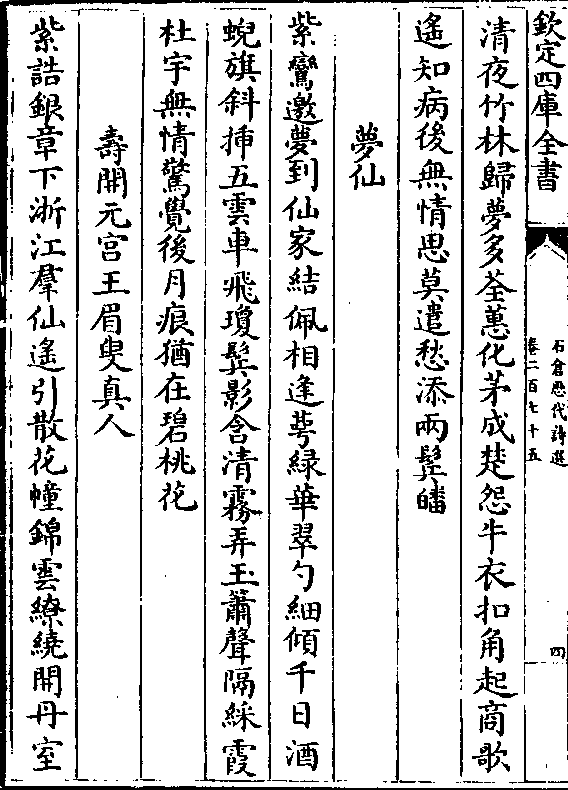 欽定四庫全書
石倉歷代詩選
卷二百七十五
四
清夜竹林歸夢多荃蕙化茅成楚怨牛衣扣角起商歌
遙知病後無情思莫遣愁添兩鬂皤
夢仙
紫鸞邀夢到仙家結佩相逢萼緑華翠勺細傾千日酒
蜺旗斜揷五雲車飛瓊鬂影含清霧弄玉簫聲隔綵霞
杜宇無情驚覺後月痕猶在碧桃花
壽開元宫王眉叟真人
紫誥銀章下浙江羣仙遙引散花幢錦雲繚繞開丹室